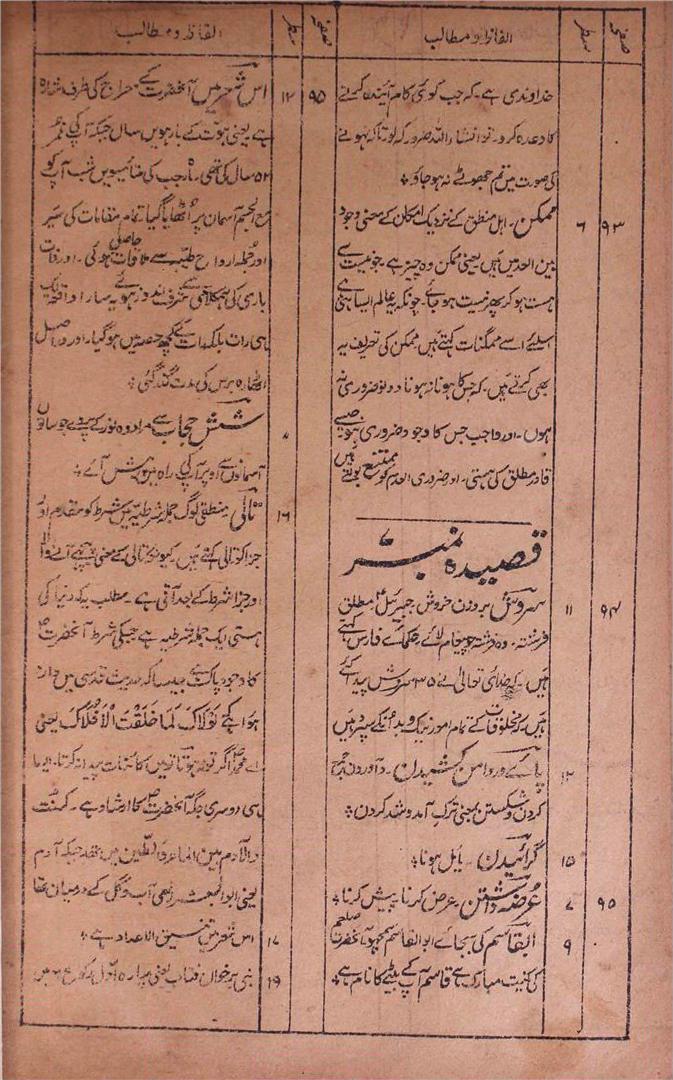 صفحہ سطر الفاظ و مطالب
خداوندی ہے۔ کہ جب کوئی کام آئیندہ کرنے
کا وعدہ کرو۔ تو انشاء اللہ ضرور کہہ لو تاکہ نہ ہونے
کی صورت میں تم جھوٹے نہ ہو جاؤ؞
۹۳ ۶ ممکن۔ اہل منطق کے نزدیک امکان کے معنی وجود
بین العدمیں ہیں یعنی ممکن وہ چیز ہے۔ جو نیست سے
ہست ہو کر پھر نیست ہو جائے۔ چونکہ یہ عالم ایسا ہی ہے
اسلیئے اسے ممکنات کہتے ہیں۔ ممکن کی تعریف یہ
بھی کرتے ہیں۔ کہ جس کا ہونا نہ ہونا دونو ضروری نہ
ہوں۔ اور واجب جس کا وجود ضروری ہو جیسے
قادر مطلق کی ہستی۔ اور ضروری العدم کو ممتنع بولتے ہیں
قصیدہ نمبر ۷
۹۴ ۱۱ سروش بروزن خروش جبرئیل مطلق
فرشتہ۔ وہ فرشتہ جو پیغام لائے۔ حکمائے فارس کہتے
ہیں۔ کہ خدای تعالیٰ نے ۳۵ سروش پیدا کئے
ہیں۔ کہ مخلوقات کے تمام امور نیک و بد انکے سپرد ہیں
۱۲ پائے در دامن کشیدن۔ و آوردن جمع
کردن و شکستن بمعنی ترک آمد و شد کردن؞
۱۵ گرائیدن۔ مایل ہونا؞
۹۵ ۷ عرضہ داشتن۔ عرض کرنا پیش کرنا؞
۹ القاسم کی بجائے ابو القاسم سمجھو۔ آنحضرت صلعم
کی کنیت مبارک ہے قاسم آپ کے بیٹے کا نام ہے؞
صفحہ سطر الفاظ و مطالب
۹۵ ۱۲ اس شعر میں آنحضرت کے معراج کی طرف اشارہ
ہے یعنی نبوت کے بارہویں سال جبکہ آپ کی عمر
۵۲ سال کی تھی۔ ماہ رجب کی ستائیسویں شب آپ کو
مع الجسم آسمان پر اُٹھایا گیا تمام مقامات کی سیر
اور جملہ ارواح طیبہ سے ملاقات حاصل ہوئی۔ اور ذات
باری کی ہمکلامی سے شرف اندوز ہوئے یہ سارا واقعہ ایک
ہی رات بلکہ رات کے کچھ حصہ میں ہو گیا۔ اور دراصل
اٹھارہ برس کی مدت گذر گئی؞
شش حجاب سے مراد وہ نور کے پردے جو ساتوں
آسمانوں سے اوپر آپ کی راہ میں پیش آئے؞
۱۶ تالی۔ منطقی لوگ جملہ شرطیہ میں شرط کو مقدم اور
جزا کو تالی کہتے ہیں۔ کیونکہ تالی کے معنی پیچھے آنے والا
اور جزا شرط کے بعد آتی ہے۔ مطلب یہ کہ دنیا کی
ہستی ایک جملہ شرطیہ ہے جسکی شرط آنحضرت ؐ
کا وجود پاک ہے جیسا کہ حدیث قدسی میں وارد
ہوا ہے کے لَوْلَاکَ لَمَا خَلَقْتُ الْاَفْلَاکَ یعنی
اے محمد ؐ اگر تو نہ ہوتا تو میں کائنات پیدا نہ کرتا۔ ایسا
ہی دوسری جگہ آنحضرت ؐ کا ارشاد ہے۔ کُنْتُ
والآدم بین الماء والطین میں تھا جبکہ آدم
یعنی ابو البشر ابھی آب و گل کے درمیان تھا
۱۷ اس شعر میں تنسیق الاعداد ہے؞
۱۹